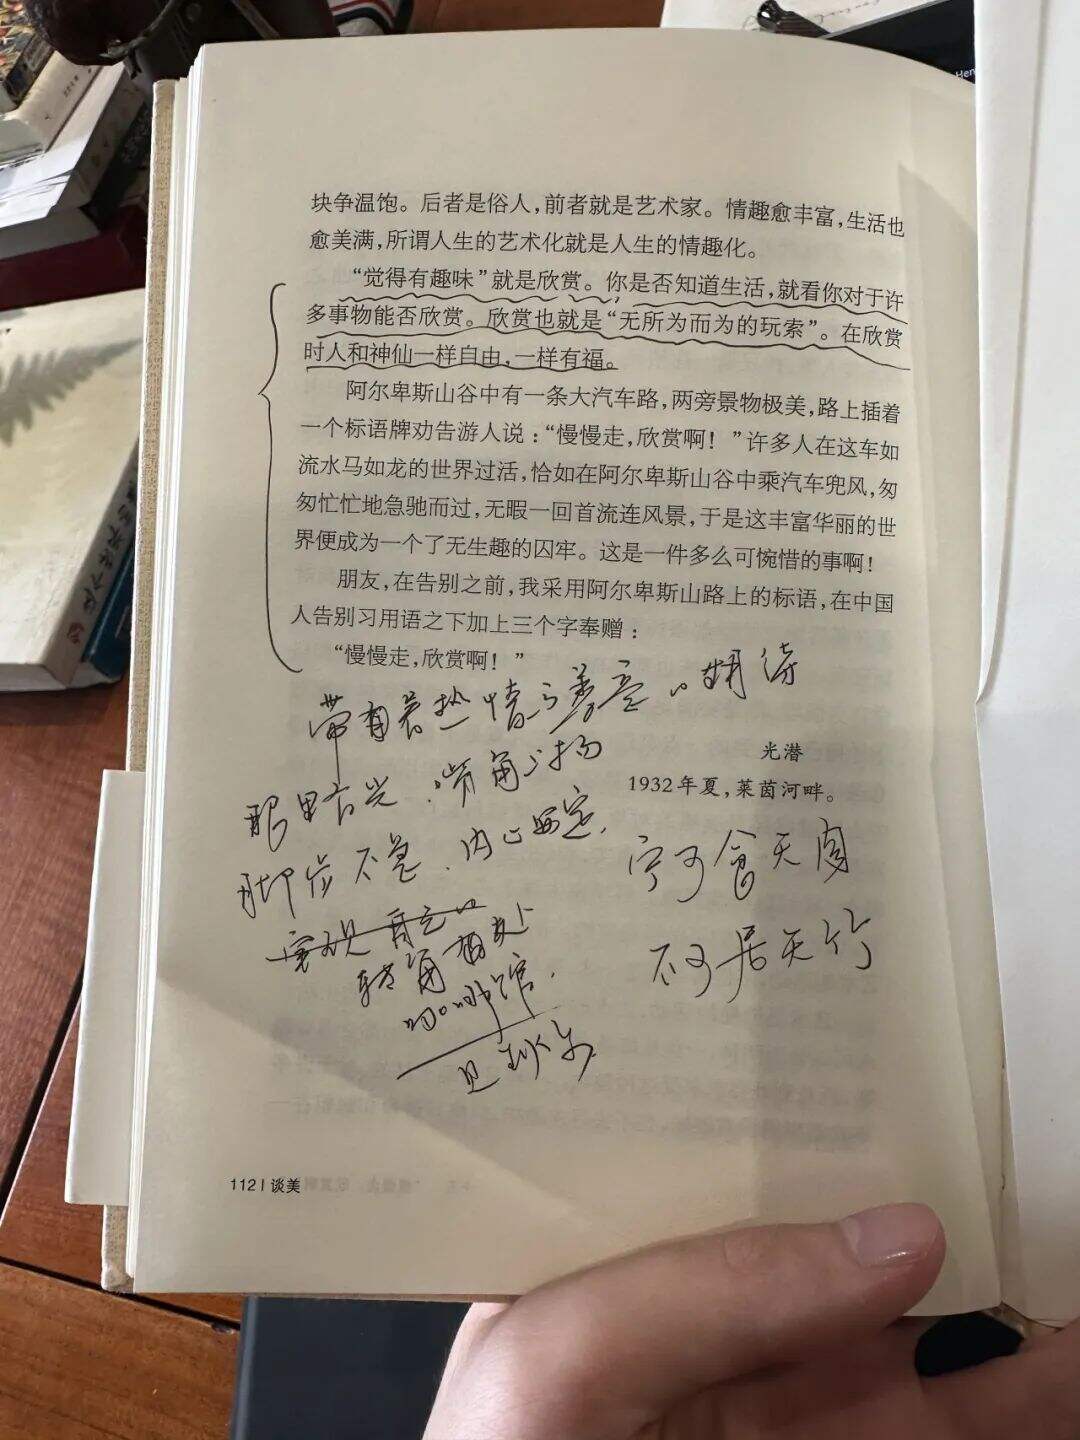 块争温饱。后者是俗人，前者就是艺术家。情趣愈丰富，生活也
愈美满，所谓人生的艺术化就是人生的情趣化。
“觉得有趣味”就是欣赏。你是否知道生活，就看你对于许
多事物能否欣赏。欣赏也就是“无所为而为的玩索”。在欣赏
时人和神仙一样自由，一样有福。
阿尔卑斯山谷中有一条大汽车路，两旁景物极美，路上插着
一个标语牌劝告游人说：“慢慢走，欣赏啊！”许多人在这车如
流水马如龙的世界过活，恰如在阿尔卑斯山谷中乘汽车兜风，匆
匆忙忙地急驰而过，无暇一回首流连风景，于是这丰富华丽的世
界便成为一个了无生趣的囚牢。这是一件多么可惋惜的事啊！
朋友，在告别之前，我采用阿尔卑斯山路上的标语，在中国
人告别习用语之下加上三个字奉赠：
“慢慢走，欣赏啊！”
带有着热情与善意的期待
光潜
1932年夏，莱茵河畔。
眼里有光，嘴角上扬
脚步不急，内心安定，
宁可食无肉
不可居无竹
转角
咖啡馆.
112 | 谈美
Hen